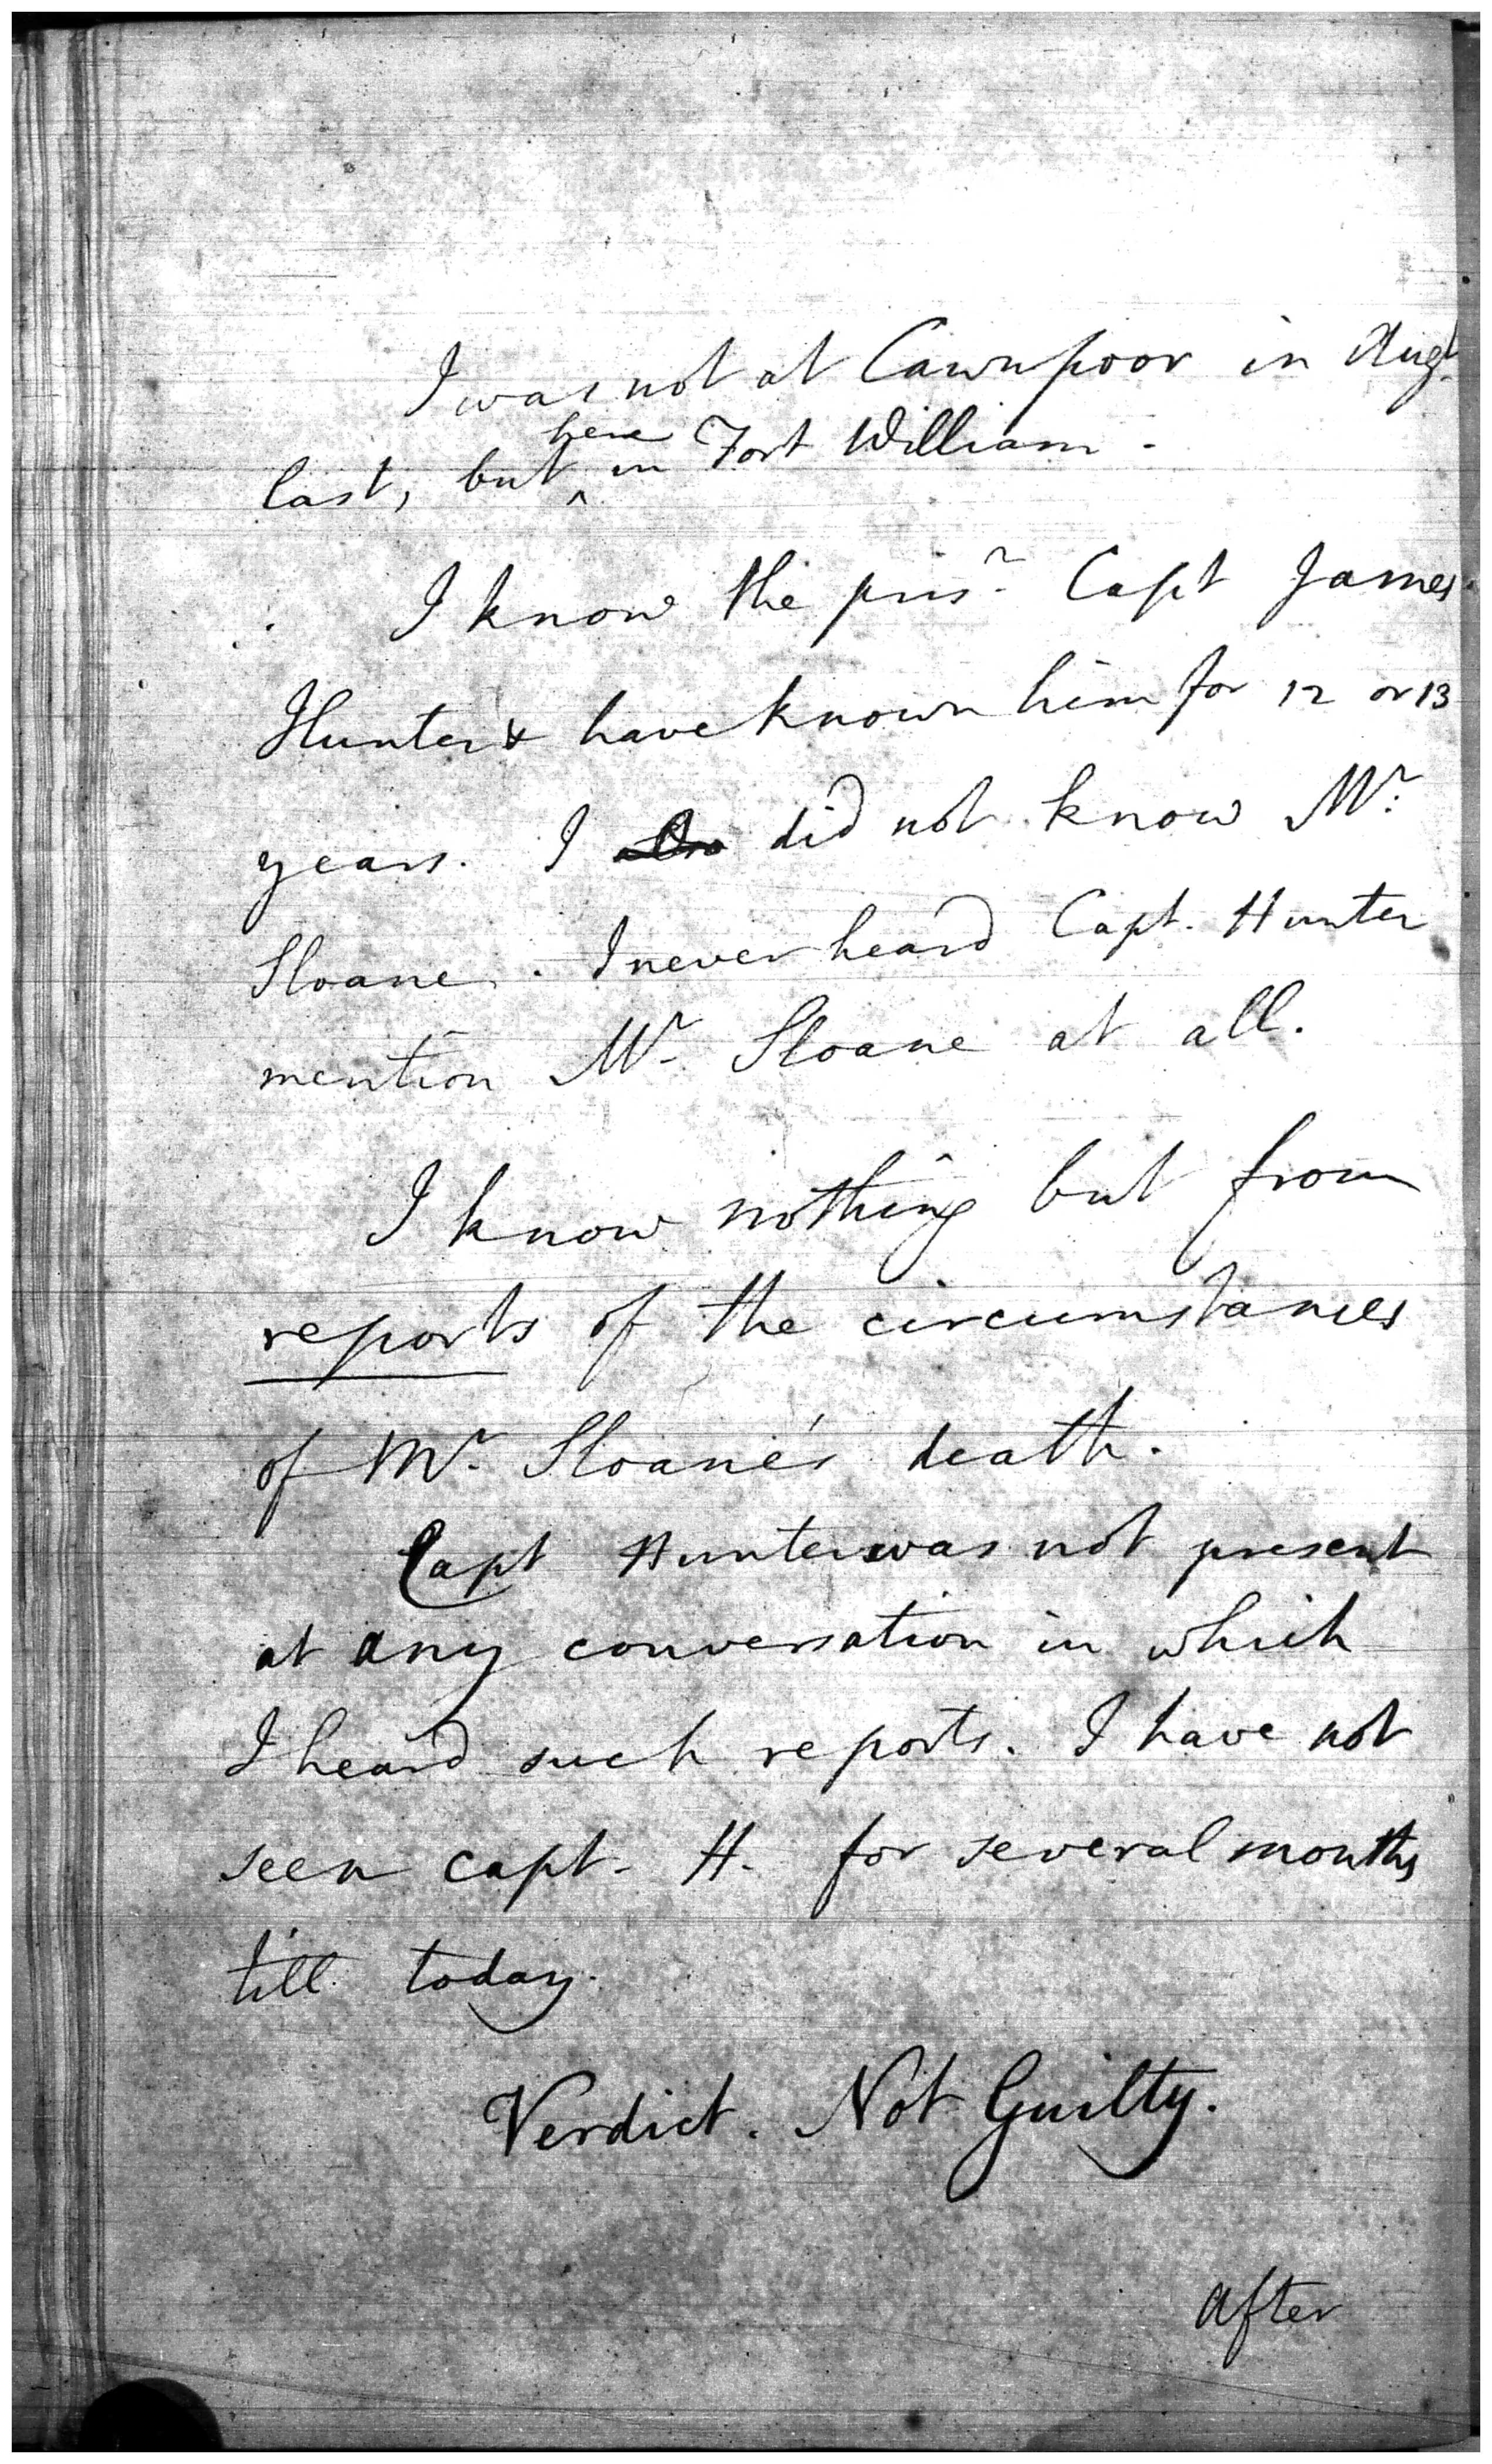 I was not at Cawnpoor in Augt.
last, but here in Fort William -
I know the prisr. Capt James
Hunter & have known him for 12 or 13
years. I also did not know Mr.
Sloane. I never heard Capt. Hunter
mention Mr. Sloane at all.
I know nothing but from
reports of the circumstances
of Mr. Sloane's death.
Capt Hunter was not present
at any conversation in which
I heard such reports. I have not
seen Capt. H. for several months
till today.
Verdict. Not Guilty.
After